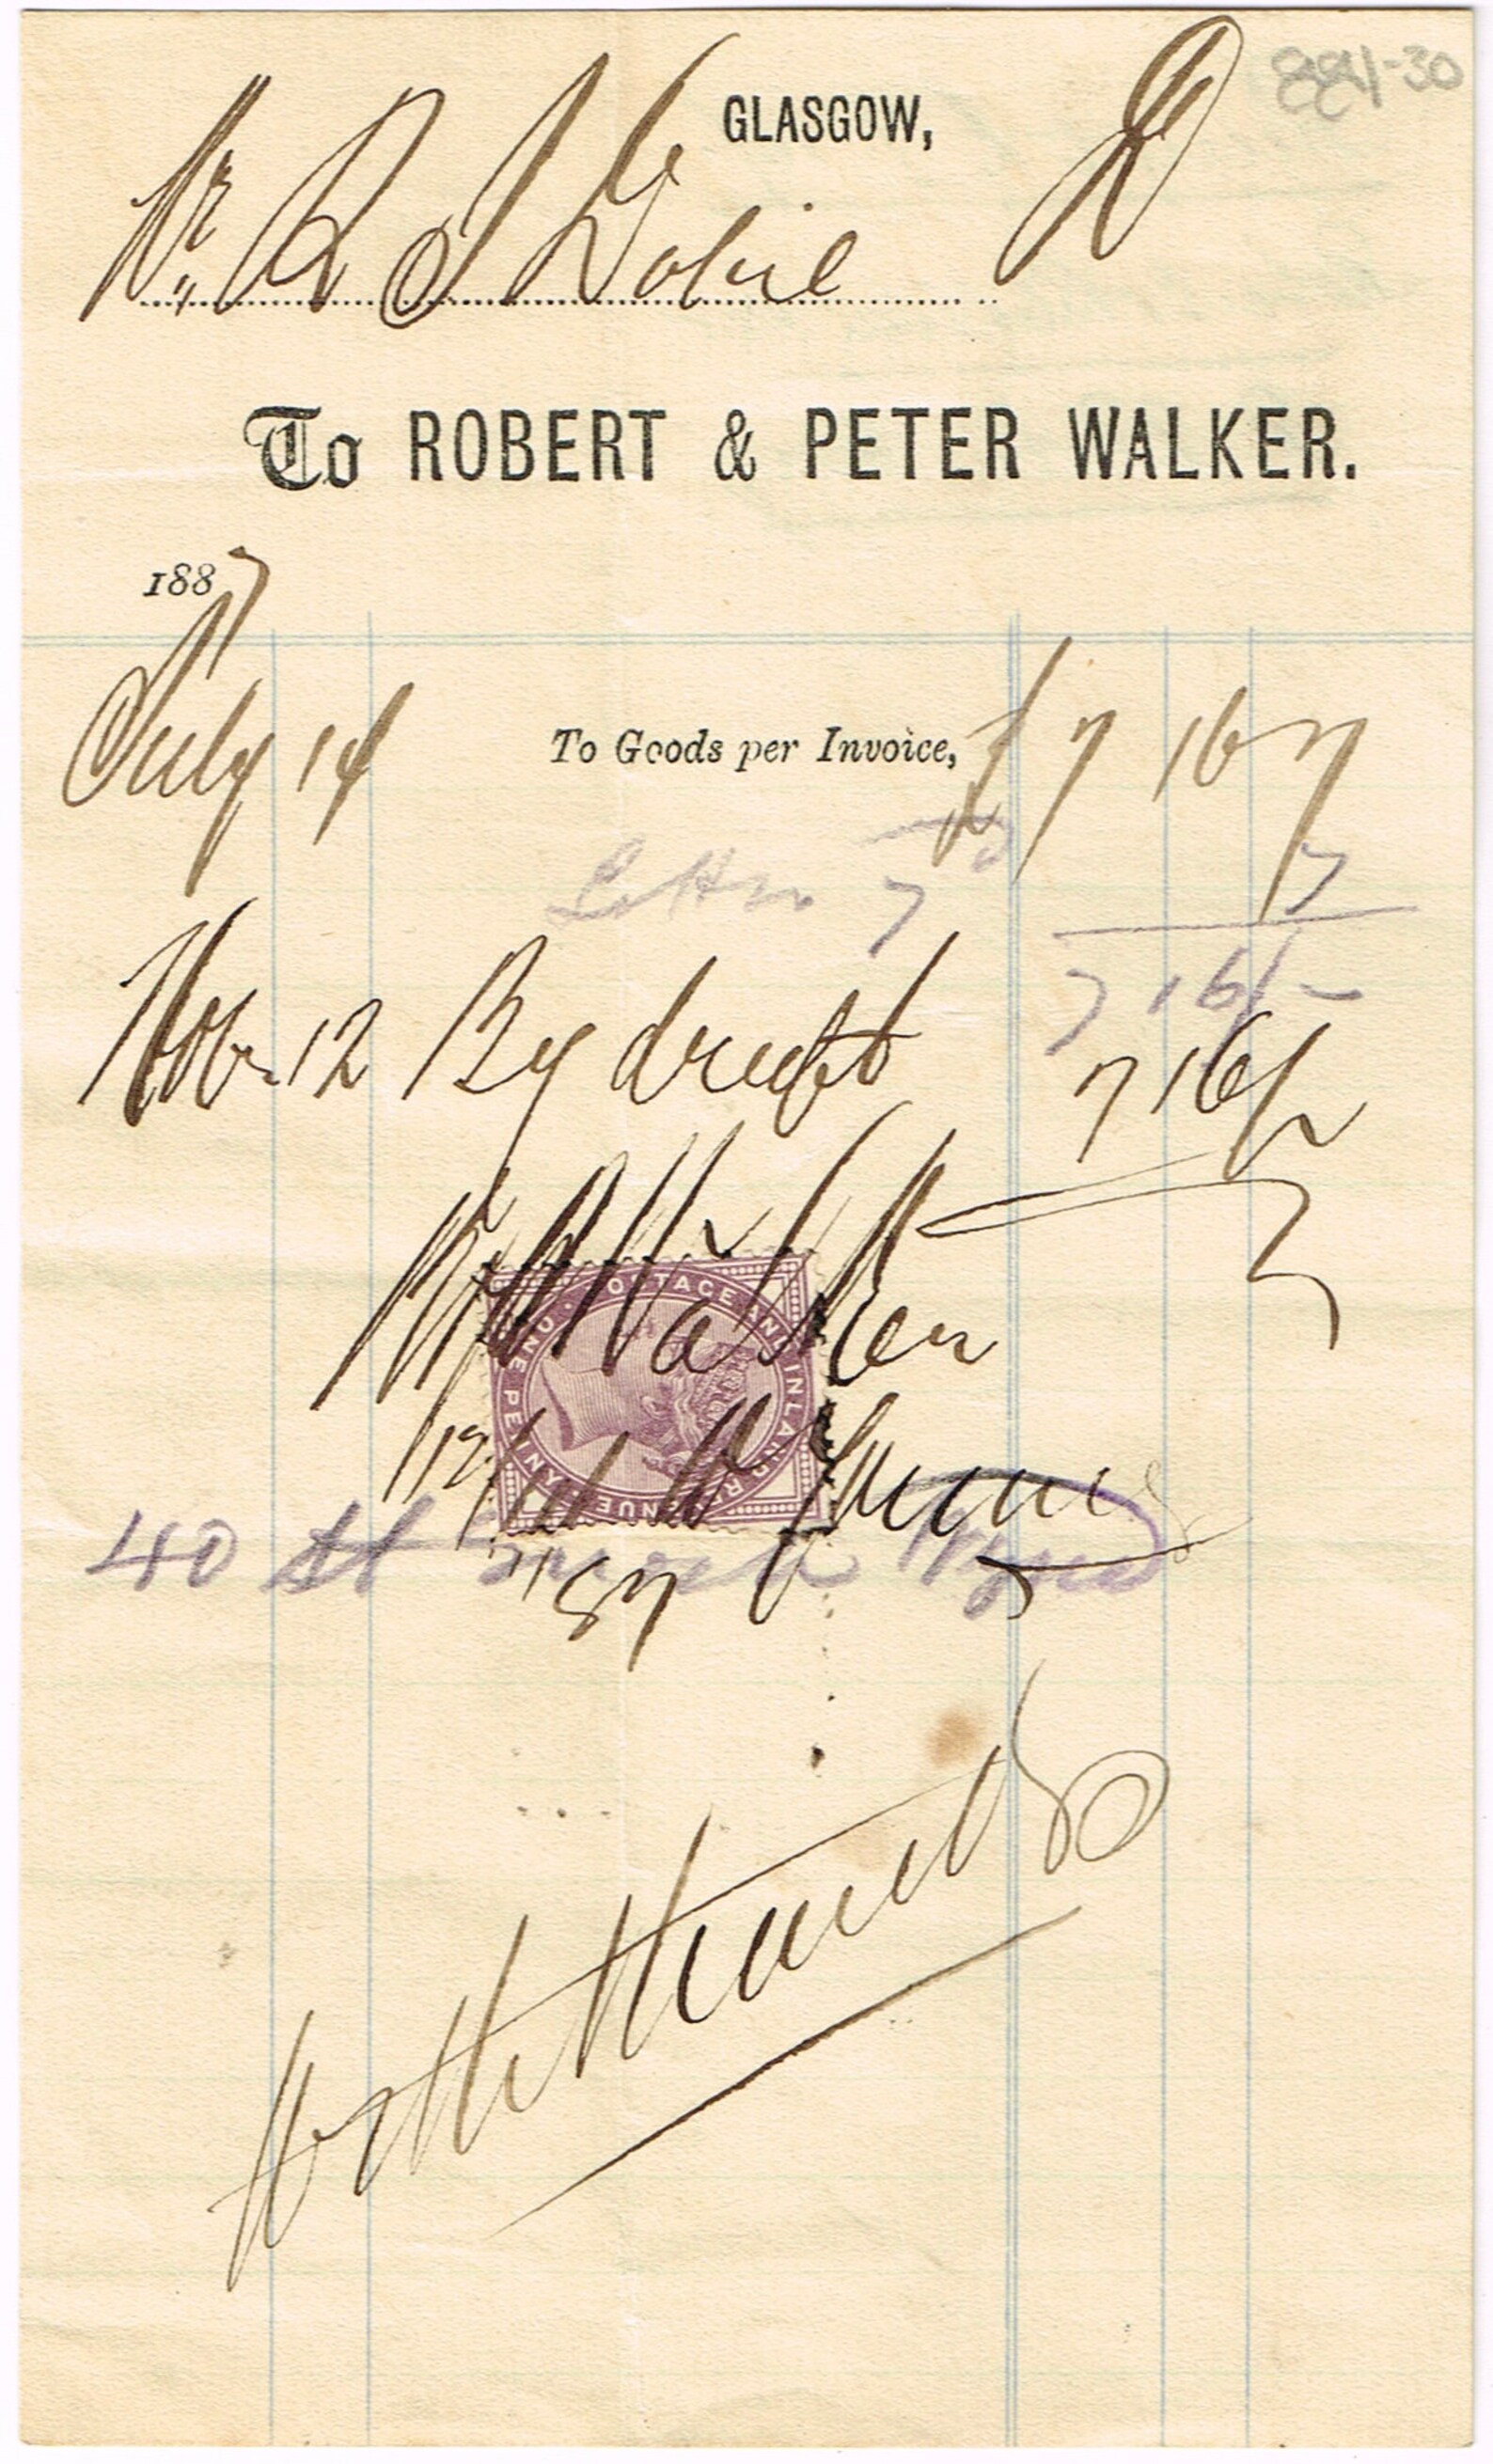 884-30
GLASGOW,
Mr. R J Dobie
To ROBERT & PETER WALKER.
1887
July 14 To Goods per Invoice, £7 16 7
7
7 16/-
Nov 12 By draft 7 16/-
R & P Walker
POSTAGE AND INLAND REVENUE ONE PENNY
12/11/87
40 St Enoch
With thanks